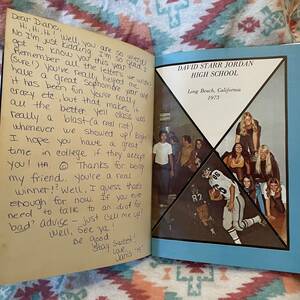 Dear Diane,
Hi, Hi, Hi! Well, you are so weird!
No I'm just kidding. I'm so glad I
got to know you this year. God!
Remember all the letters we wrote
(sure!) You've really helped me
have a great Sophomore year and
it has been fun. You're really
crazy etc, but that makes it
all the better. Yell class was
really a blast-(a real riot)
whenever we showed up! Right!
I hope you have a great
time in college if they accept
you! HA Thanks for being
my friend. You're a real
winner!! Well, I guess that's
enough for now. If you ever
need to talk to an idiot for
bad advise - just call me up!
Well, see ya.
Be good
Stay Sweet!
Love,
Janis
DAVID STARR JORDAN
HIGH SCHOOL
Long Beach, California
1973